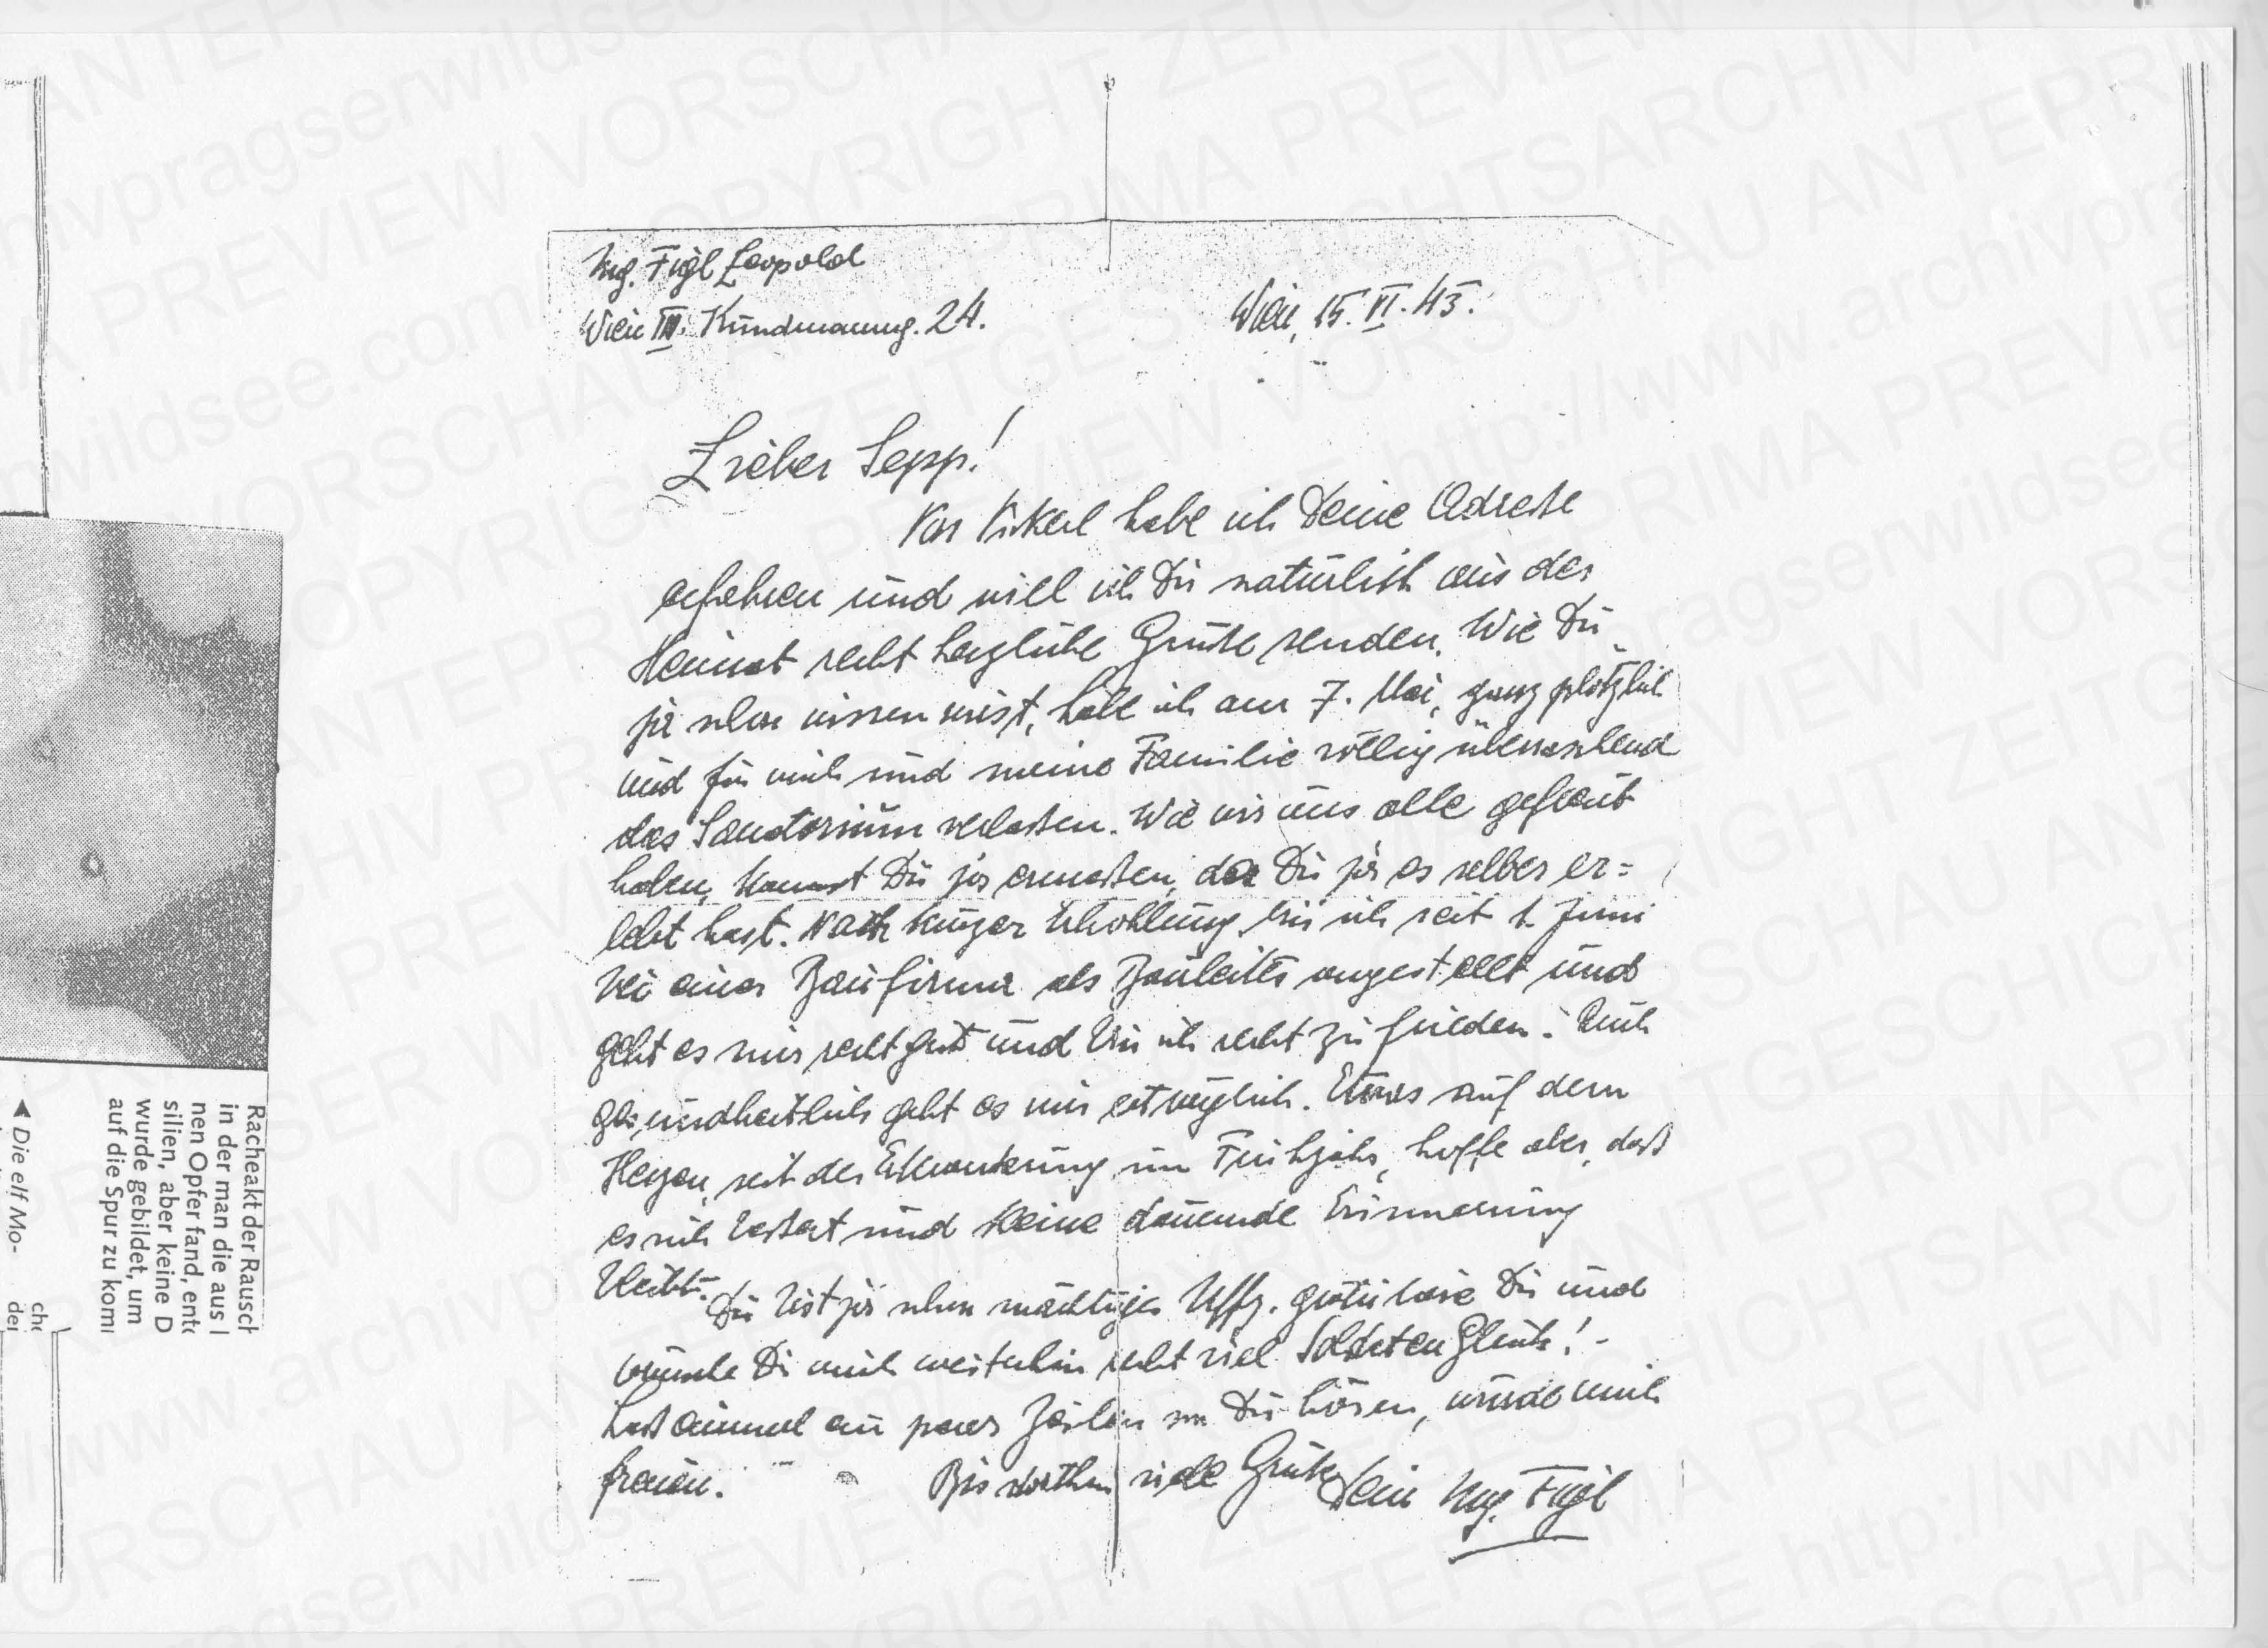 Ing. Figl Leopold
Wien III. Kundmanng. 24.
Wien, 15. VI. 43.
Lieber Sepp!
Von habe ich Deine Adresse
erfahren und will ich Dir natürlich aus der
Heimat recht herzliche Grüße senden. Wie Du
ja schon wissen wirst, habe ich am 7. Mai, ganz plötzlich
und für mich und meine Familie völlig überraschend
das Sanatorium verlassen. Wie wir uns alle gefreut
haben, kannst Du ja ermessen, da Du ja es selber er=
lebt hast. Nach kurzer Erhohlung bin ich seit 1. Juni
bei einer Baufirma als Bauleiter angestellt und
geht es mir recht gut und bin ich recht zufrieden. Auch
gesundheitlich geht es mir erträglich. Etwas auf dem
Herzen, seit der Erkrankung im Frühjahr, hoffe aber, daß
es sich bessert und keine dauernde Erinnerung
bleibt.
Du bist ja schon mächtiger Uffz. gratuliere Dir und
wünsche Dir auch weiterhin recht viel Soldatenglück! -
Laß einmal ein paar Zeilen von Dir hören, würde mich
freuen.
Bis dorthin viele Grüße Dein Ing. Figl
Racheakt der Rausch
in der man die aus I
nen Opfer fand, ent
silien, aber keine D
wurde gebildet, um
auf die Spur zu kom
◄ Die elf Mo-
che
der
ANTEPRIMA PREVIEW VORSCHAU
COPYRIGHT ZEITGESCHICHTSARCHIV PRAGSER WILDSEE
http://www.archivpragserwildsee.com